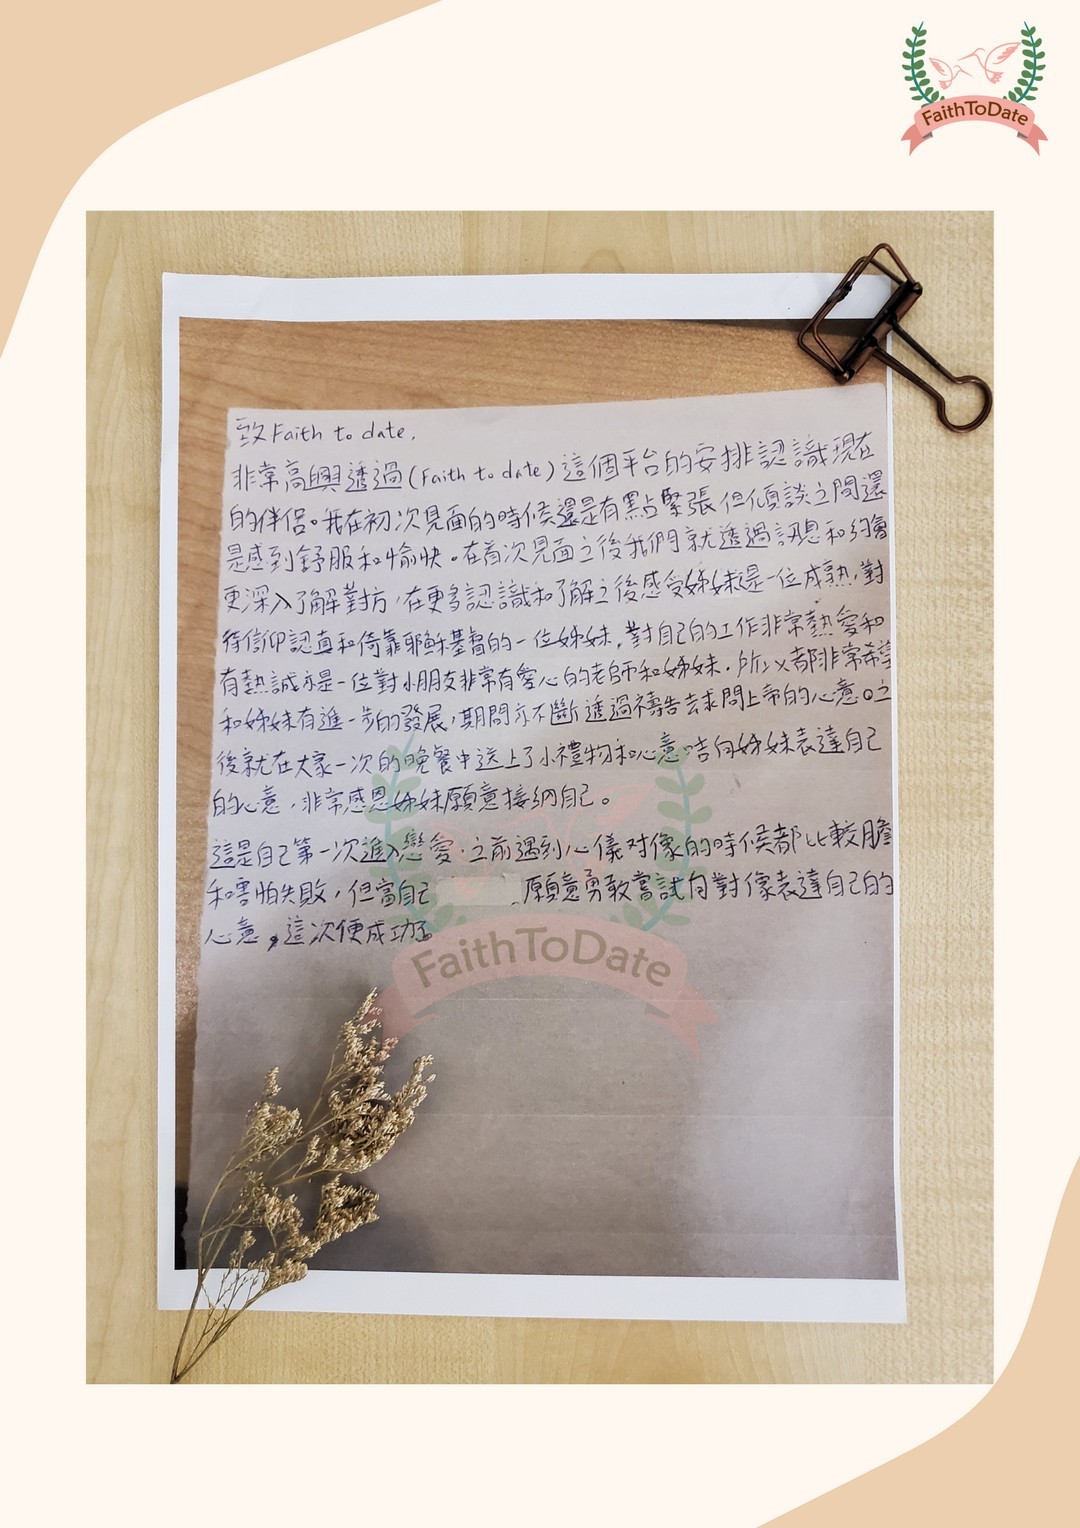 FaithToDate
致Faith to date,
非常高興透過(Faith to date)這個平台的安排認識現在
的伴侶。我在初次見面的時候還是有點緊張但傾談之間還
是感到舒服和愉快。在首次見面之後我們就透過訊息和約會
更深入了解對方,在更多認識和了解之後感受姊妹是一位成熟,對
待信仰認真和倚靠耶穌基督的一位姊妹,對自己的工作非常熱愛和
有熱誠亦是一位對小朋友非常有愛心的老師和姊妹.所以都非常希望
和姊妹有進一步的發展,期間亦不斷透過禱告去求問上帝的心意。之
後就在大家一次的晚餐中送上了小禮物和心意咭向姊妹表達自己
的心意,非常感恩姊妹願意接納自己。
這是自己第一次進入戀愛.之前遇到心儀对像的時候都比較膽
和害怕失敗,但當自己 願意勇敢嘗試向對像表達自己的
心意,這次便成功
FaithToDate